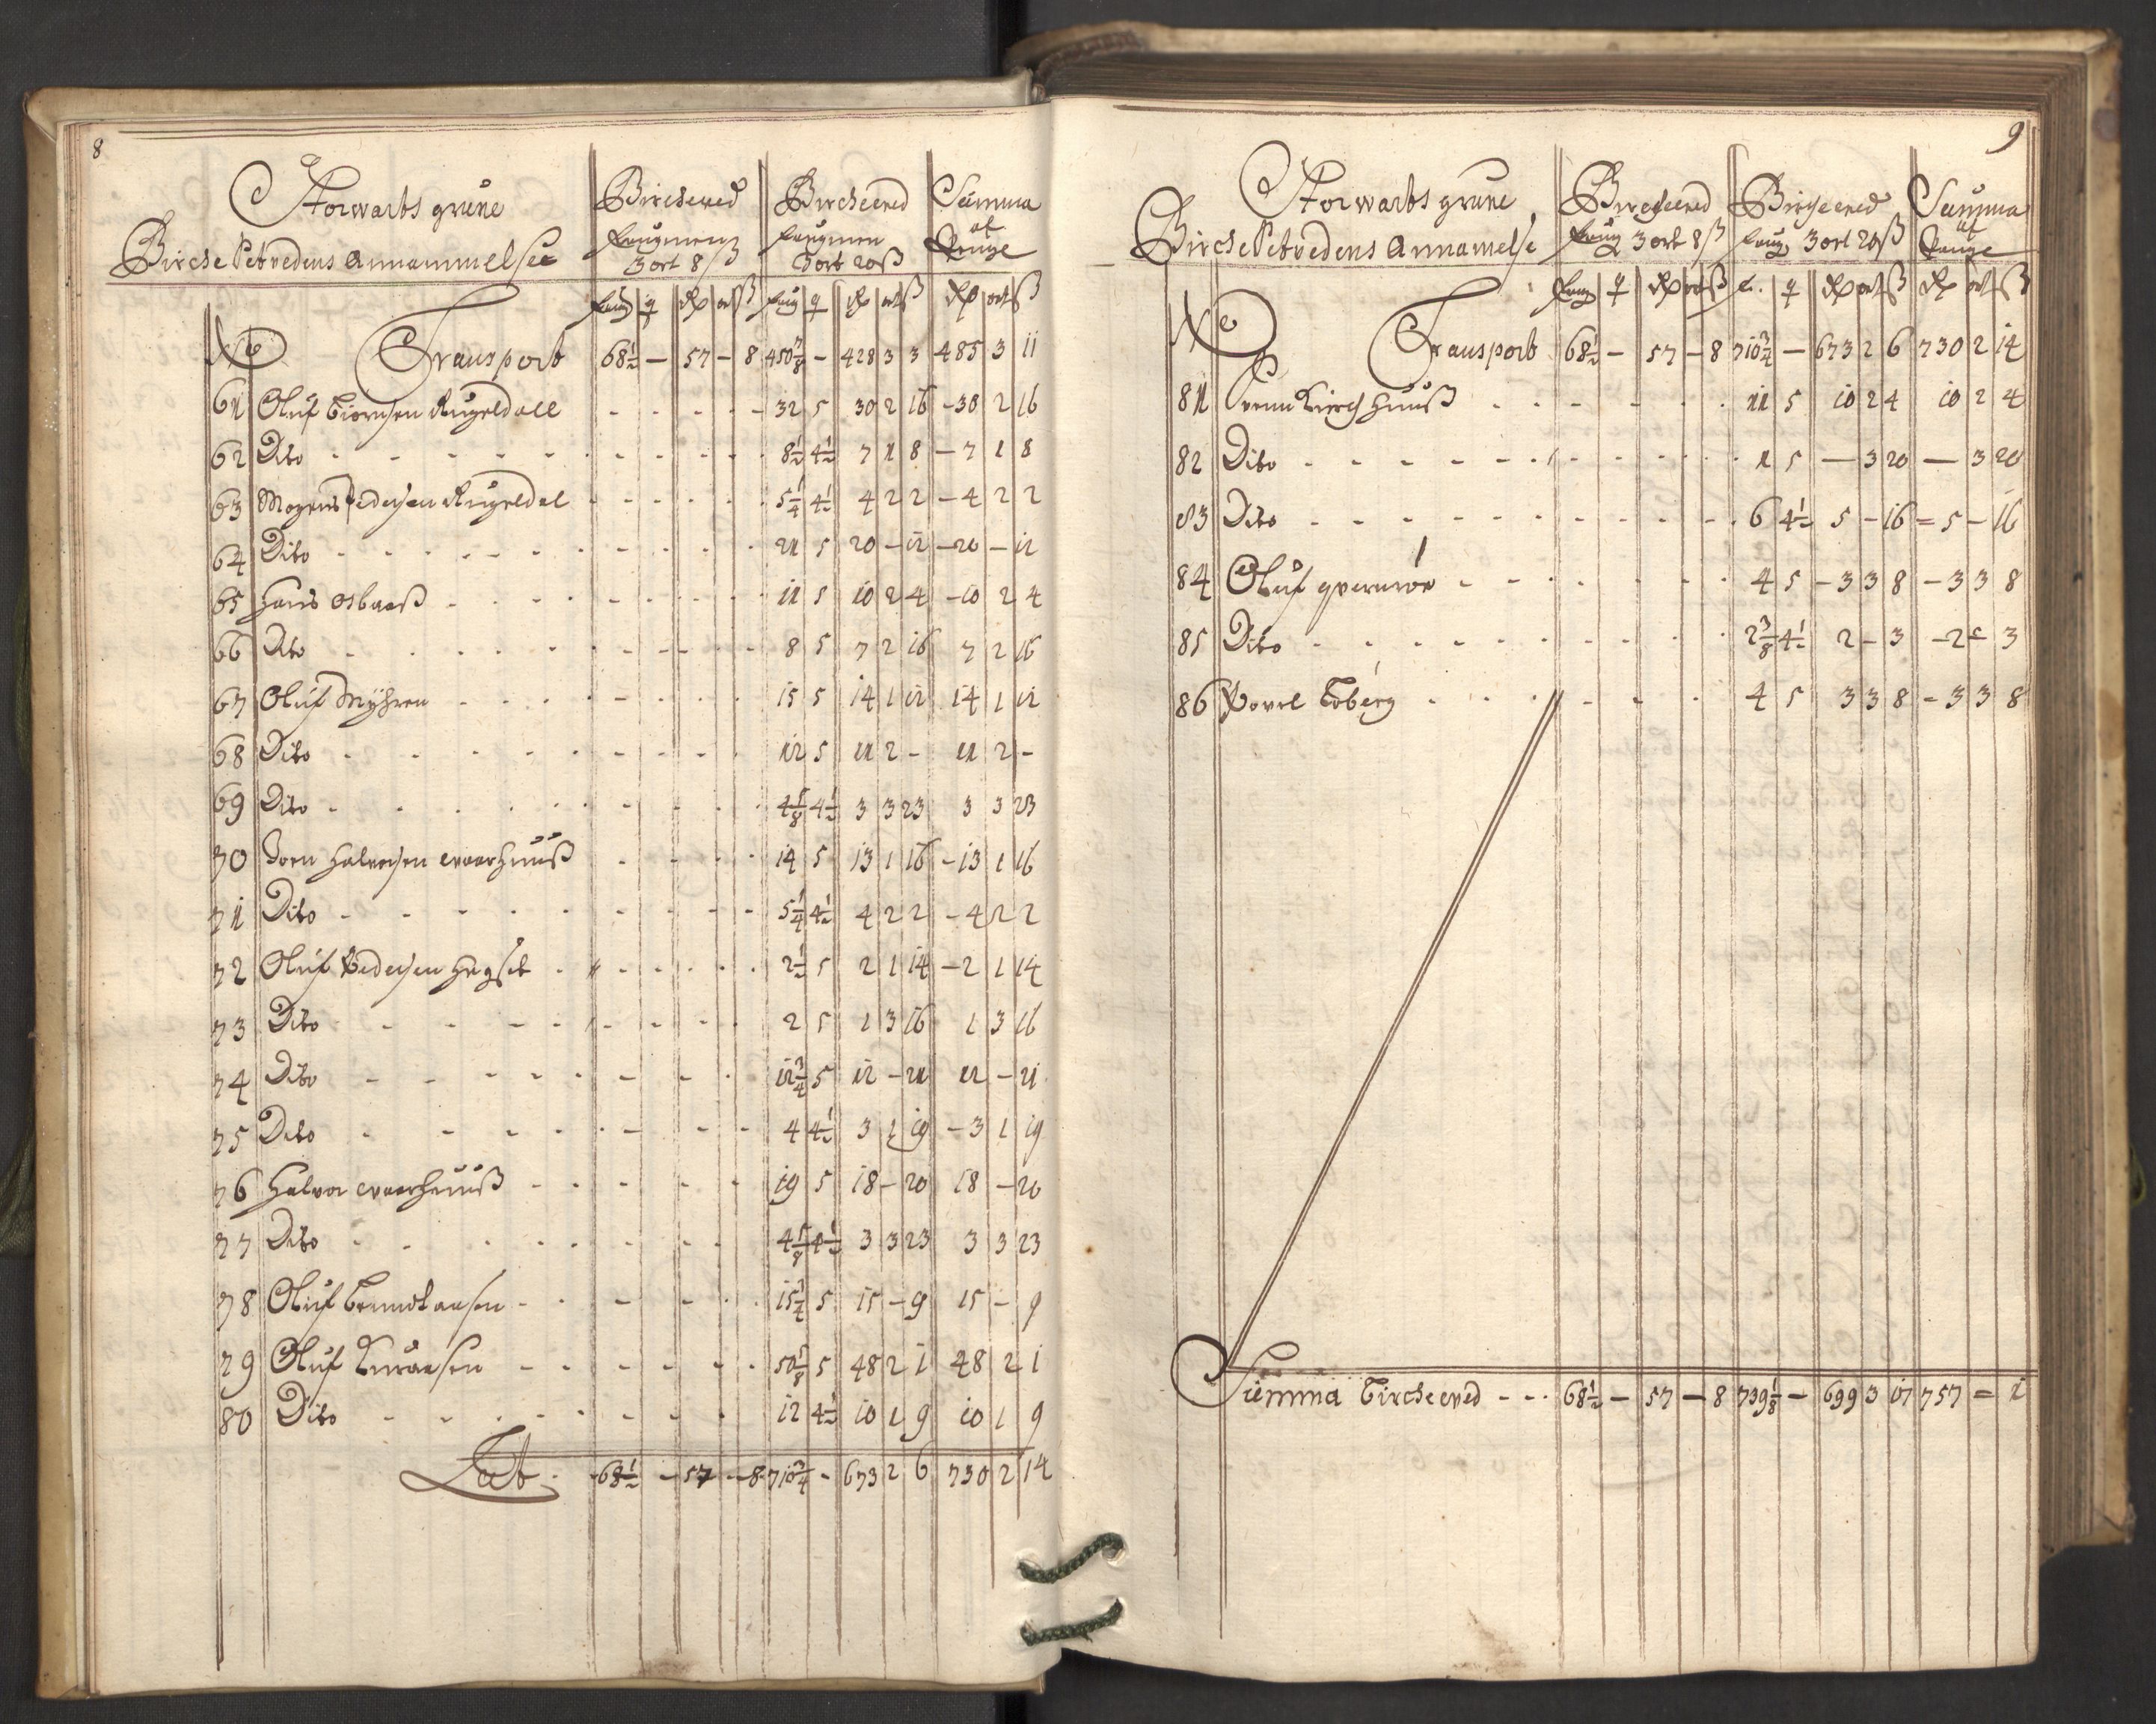 8
Storwarts grune
Birche Vebvedens Annammelsee
Bircheved
faugnen
3 ort 8 ß
Bircheved
faugnen
3 ort 20 ß
Summa
af
Penge
No
faug | q | Rd | ort | ß | faug | q | Rd | ort | ß | Rd | ort | ß
Transport 68½ — 57 — 8 450⅞ — 428 3 3 485 3 11
61 Oluf Biørnsen Rugeldall - - - - - 32 5 30 2 16 - 30 2 16
62 Dito - - - - - 8½ 4½ 7 1 8 — 7 1 8
63 Mogens Pedersen Rugeldal - - - - 5¼ 4½ 4 2 2 - 4 2 2
64 Dito - - - - - 21 5 20 - 12 - 20 - 12
65 Hans Osbaaß - - - - - 11 5 10 2 4 - 10 2 4
66 Dito - - - - - 8 5 7 2 16 7 2 16
67 Oluf Mÿhren - - - - - 15 5 14 1 12 14 1 12
68 Dito - - - - - 12 5 11 2 - 11 2 -
69 Dito - - - - - 4⅝ 4½ 3 3 23 3 3 23
70 Joen Halvorsen Evaerhuuß - - - 14 5 13 1 16 - 13 1 16
71 Dito - - - - - 5¼ 4½ 4 2 2 - 4 2 2
72 Oluf Pedersen Hegset - - - - - 2½ 5 2 1 14 - 2 1 14
73 Dito - - - - - 2 5 1 3 16 1 3 16
74 Dito - - - - - 12¾ 5 12 - 21 12 - 21
75 Dito - - - - - 4 4½ 3 1 19 - 3 1 19
76 Halvor Evaerhuuß - - - - - 19 5 18 - 20 18 - 20
77 Dito - - - - - 4⅝ 4½ 3 3 23 3 3 23
78 Oluf - - - - 15¾ 5 15 - 9 15 - 9
79 Oluf - - - - - 50⅝ 5 48 2 1 48 2 1
80 Dito - - - - - 12 4½ 10 1 9 10 1 9
Lat. 68½ - 57 - 8 710¾ - 673 2 6 730 2 14
9
Storwarts grune
Birche Vebvedens Annamelse
Bircheved
faug 3 ort 8 ß
Bircheved
faug 3 ort 20 ß
Summa
af
Penge
No
faug | q | Rd | ort | ß | f. | q | Rd | ort | ß | Rd | ort | ß
Transport 68½ — 57 — 8 710¾ — 673 2 6 730 2 14
81 - - - - - 11 5 10 2 4 10 2 4
82 Dito - - - - - 1 5 — 3 20 — 3 20
83 Dito - - - - - 6 4½ 5 - 16 = 5 - 16
84 Oluf - - - - - 4 5 - 3 3 8 - 3 3 8
85 Dito - - - - - 2⅜ 4½ 2 - 3 - 2 - 3
86 Povel Toberg - - - - - 4 5 3 3 8 - 3 3 8
Summa Bircheved - - - 68½ — 57 — 8 739⅛ — 699 3 17 757 = 1